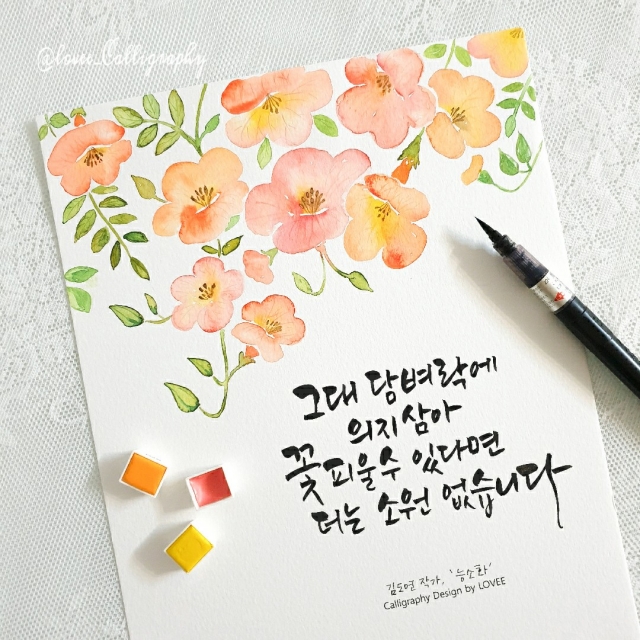 @love_Calligraphy
그대 담벼락에
의지삼아
꽃 피울수 있다면
더는 소원 없습니다
김도연 작가, '능소화'
Calligraphy Design by LOVEE